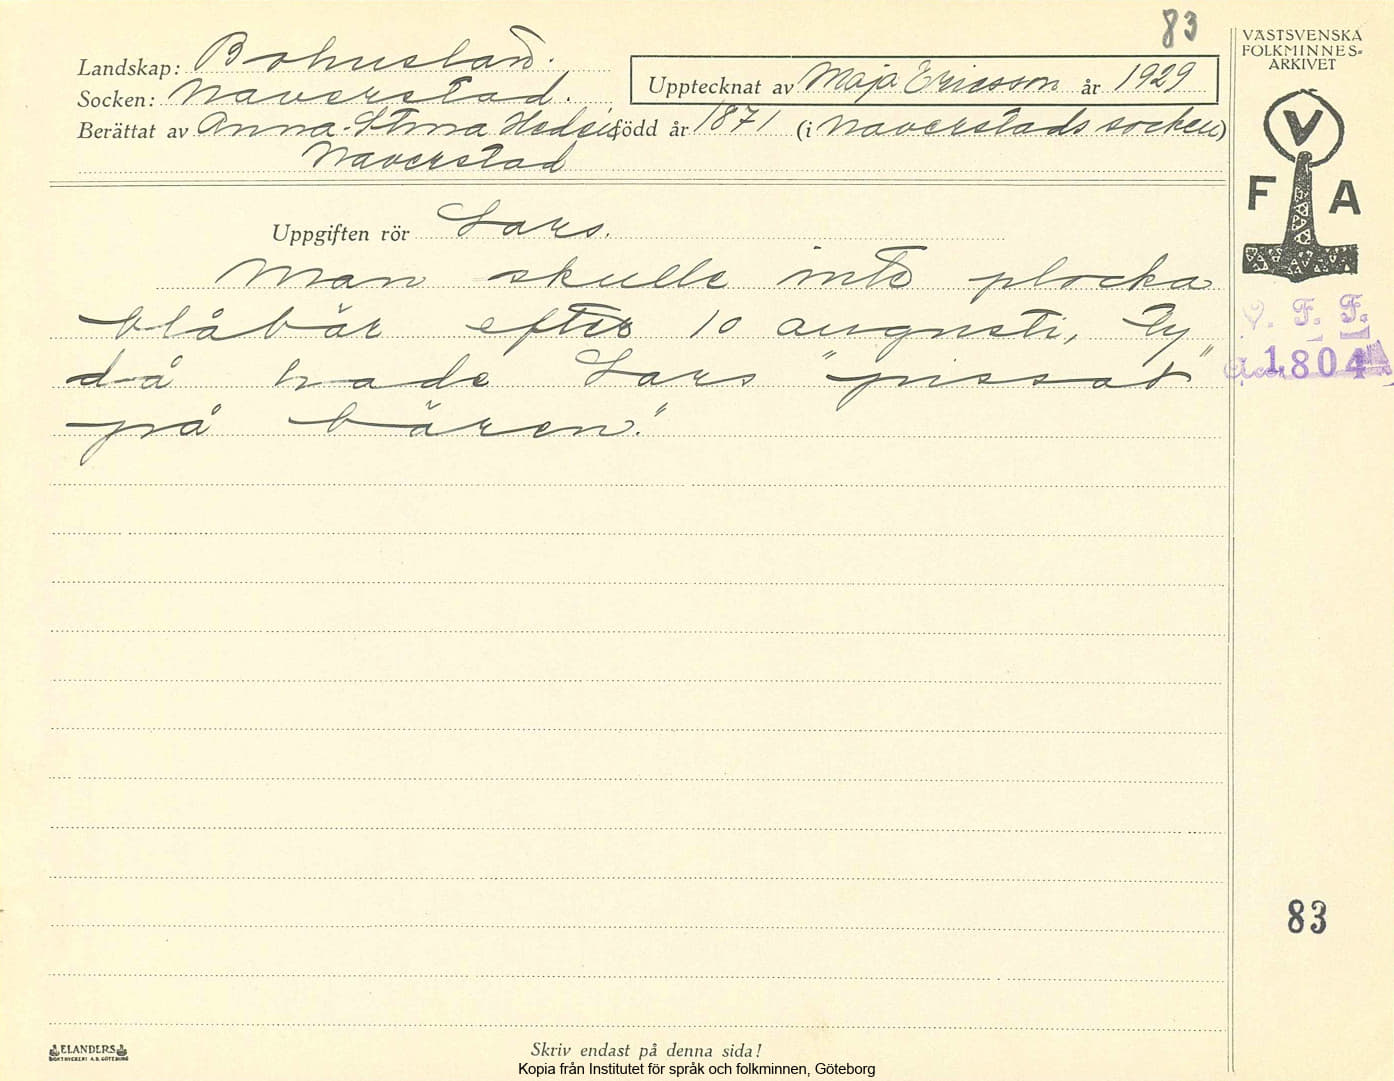 83
VÄSTSVENSKA
FOLKMINNES-
ARKIVET
Landskap: Bohuslän.
Upptecknat av Maja Ericsson år 1929
Socken: Naverstad.
Berättat av Anna-Stina född år 1871 (i Naverstads socken)
Naverstad
V
F A
Uppgiften rör Lars.
Man skulle inte plocka
blåbär efter 10 augusti, ty
då hade Lars "pissat"
på bären."
V. F. F.
1804
83
ELANDERS
BOKTRYCKERI A.B. GÖTEBORG
Skriv endast på denna sida!
Kopia från Institutet för språk och folkminnen, Göteborg